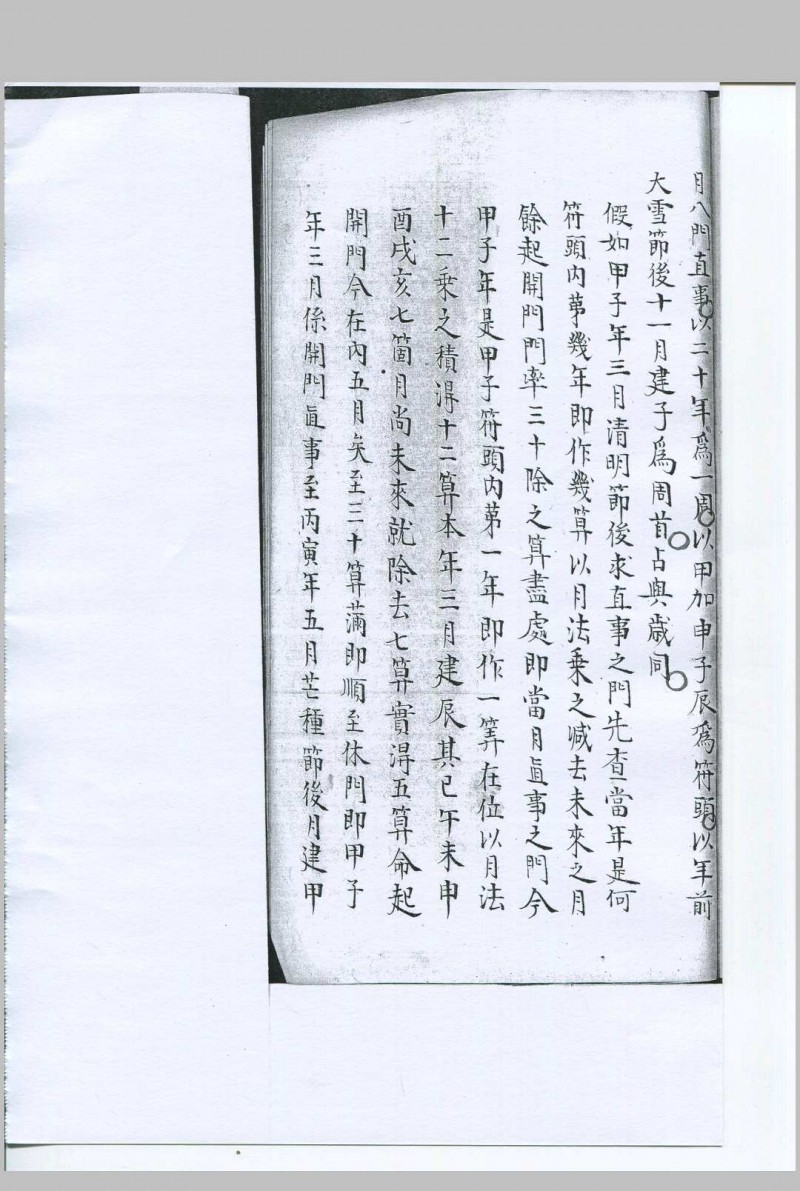 月八門直事以二十年爲一周以甲加申子辰爲符頭以年前
大雪節後十一月建子爲周首占與歲同
假如甲子年三月清明節後求直事之門先查當年是何
符頭內第幾年即作幾算以月法乘之減去未來之月
餘起開門門率三十除之算盡處即當月直事之門今
甲子年是甲子符頭內第一年即作一筭在位以月法
十二乘之積得十二算本年三月建辰其巳午未申
酉戌亥七箇月尚未來就除去七算實得五算命起
開門今在內五月矣至三十算滿即順至休門即甲子
年三月係開門直事至丙寅年五月芒種節後月建甲